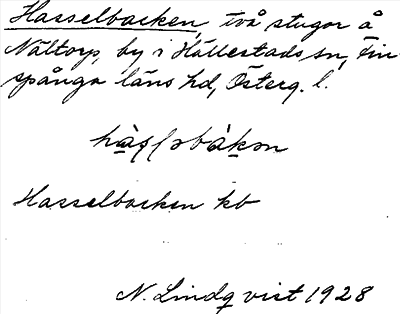 Hasselbacken, två stugor å
Nältorp, by i Hällestads sn, Fin-
spånga läns hd, Österg. l.
Hasselbacken kb
N. Lindqvist 1928